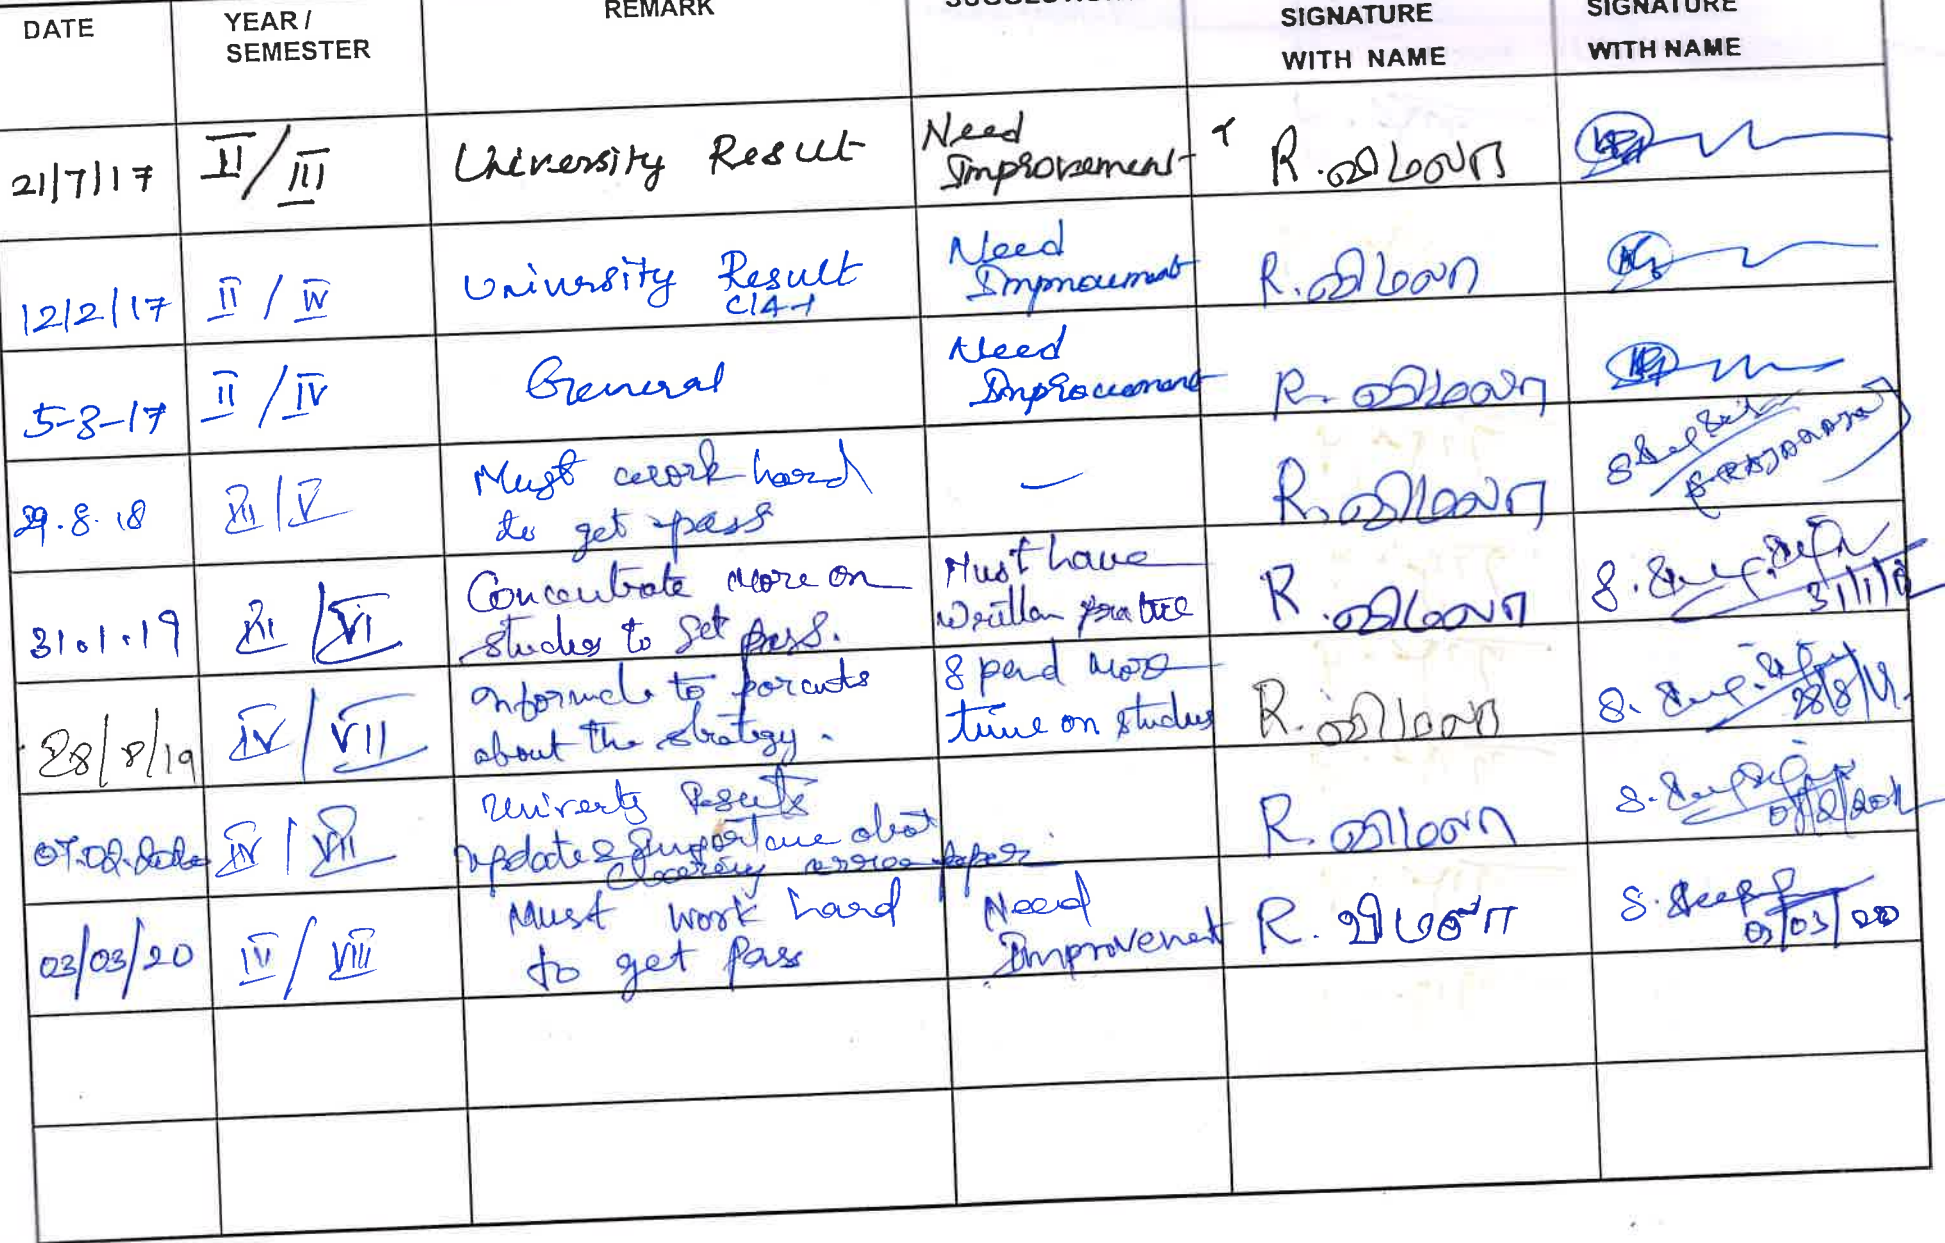 DATE YEAR / SEMESTER REMARK SIGNATURE WITH NAME SIGNATURE WITH NAME
21/7/17 II / III University Result Need Improvement R. விமலா
12/2/17 II / IV University Result CIA-I Need Improvement R. விமலா
5-3-17 II / IV General Need Improvement R. விமலா
29.8.18 III / V Must work hard to get pass — R. விமலா
31.01.19 III / VI Concentrate more on studies to get pass. Must have written practice R. விமலா 31/1/19
28/8/19 IV / VII Informed to parents about the strategy. Spend more time on studies R. விமலா 28/8/19
07.02.2020 IV / VIII University Results updates & Importance about clearing arrear paper. R. விமலா
03/03/20 IV / VIII Must work hard to get Pass Need Improvement R. விமலா 03/03/20